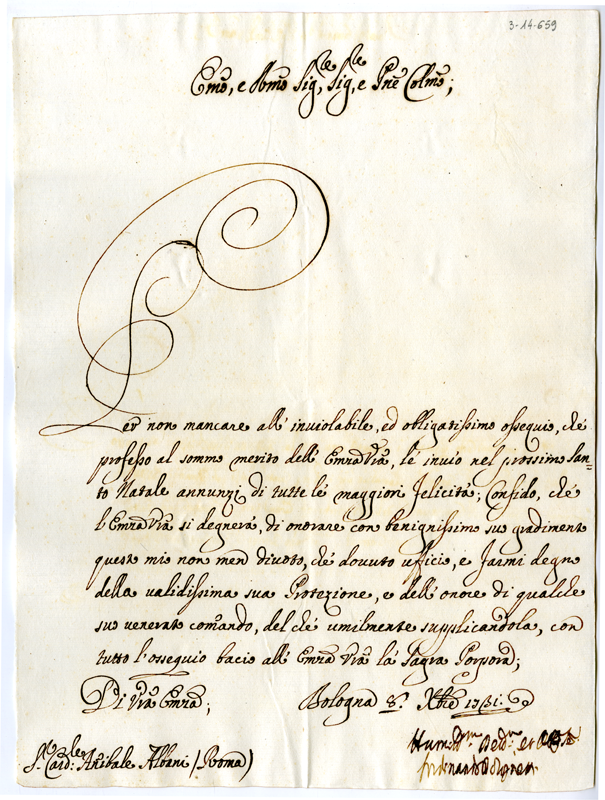 3-14-659
Emo, e Rmo Sigre, Sigre, e Pne Colmo;
Per non mancare all' inviolabile, ed obligatissimo ossequio, ché
professo al sommo merito dell' Emza Vra, lé invio nel prossimo San=
to Natale annunzi di tutte lé maggiori felicità; Confido, ché
l'Emza Vra si degnerà, di onorare con benignissimo suo gradimento
questo mio non men divoto, ché dovuto ufficio, e farmi degno
della validissima sua Protezione, e dell' onore di qualche
suo venerato comando, del ché umilmente supplicandola, con
tutto l'ossequio bacio all' Emza Vra la Sagra Porpora;
Di Vra Emza; Bologna 8. Xbre 1731.
Sr. Cardle: Anibale Albani (Roma)
Hummo Dedmo et